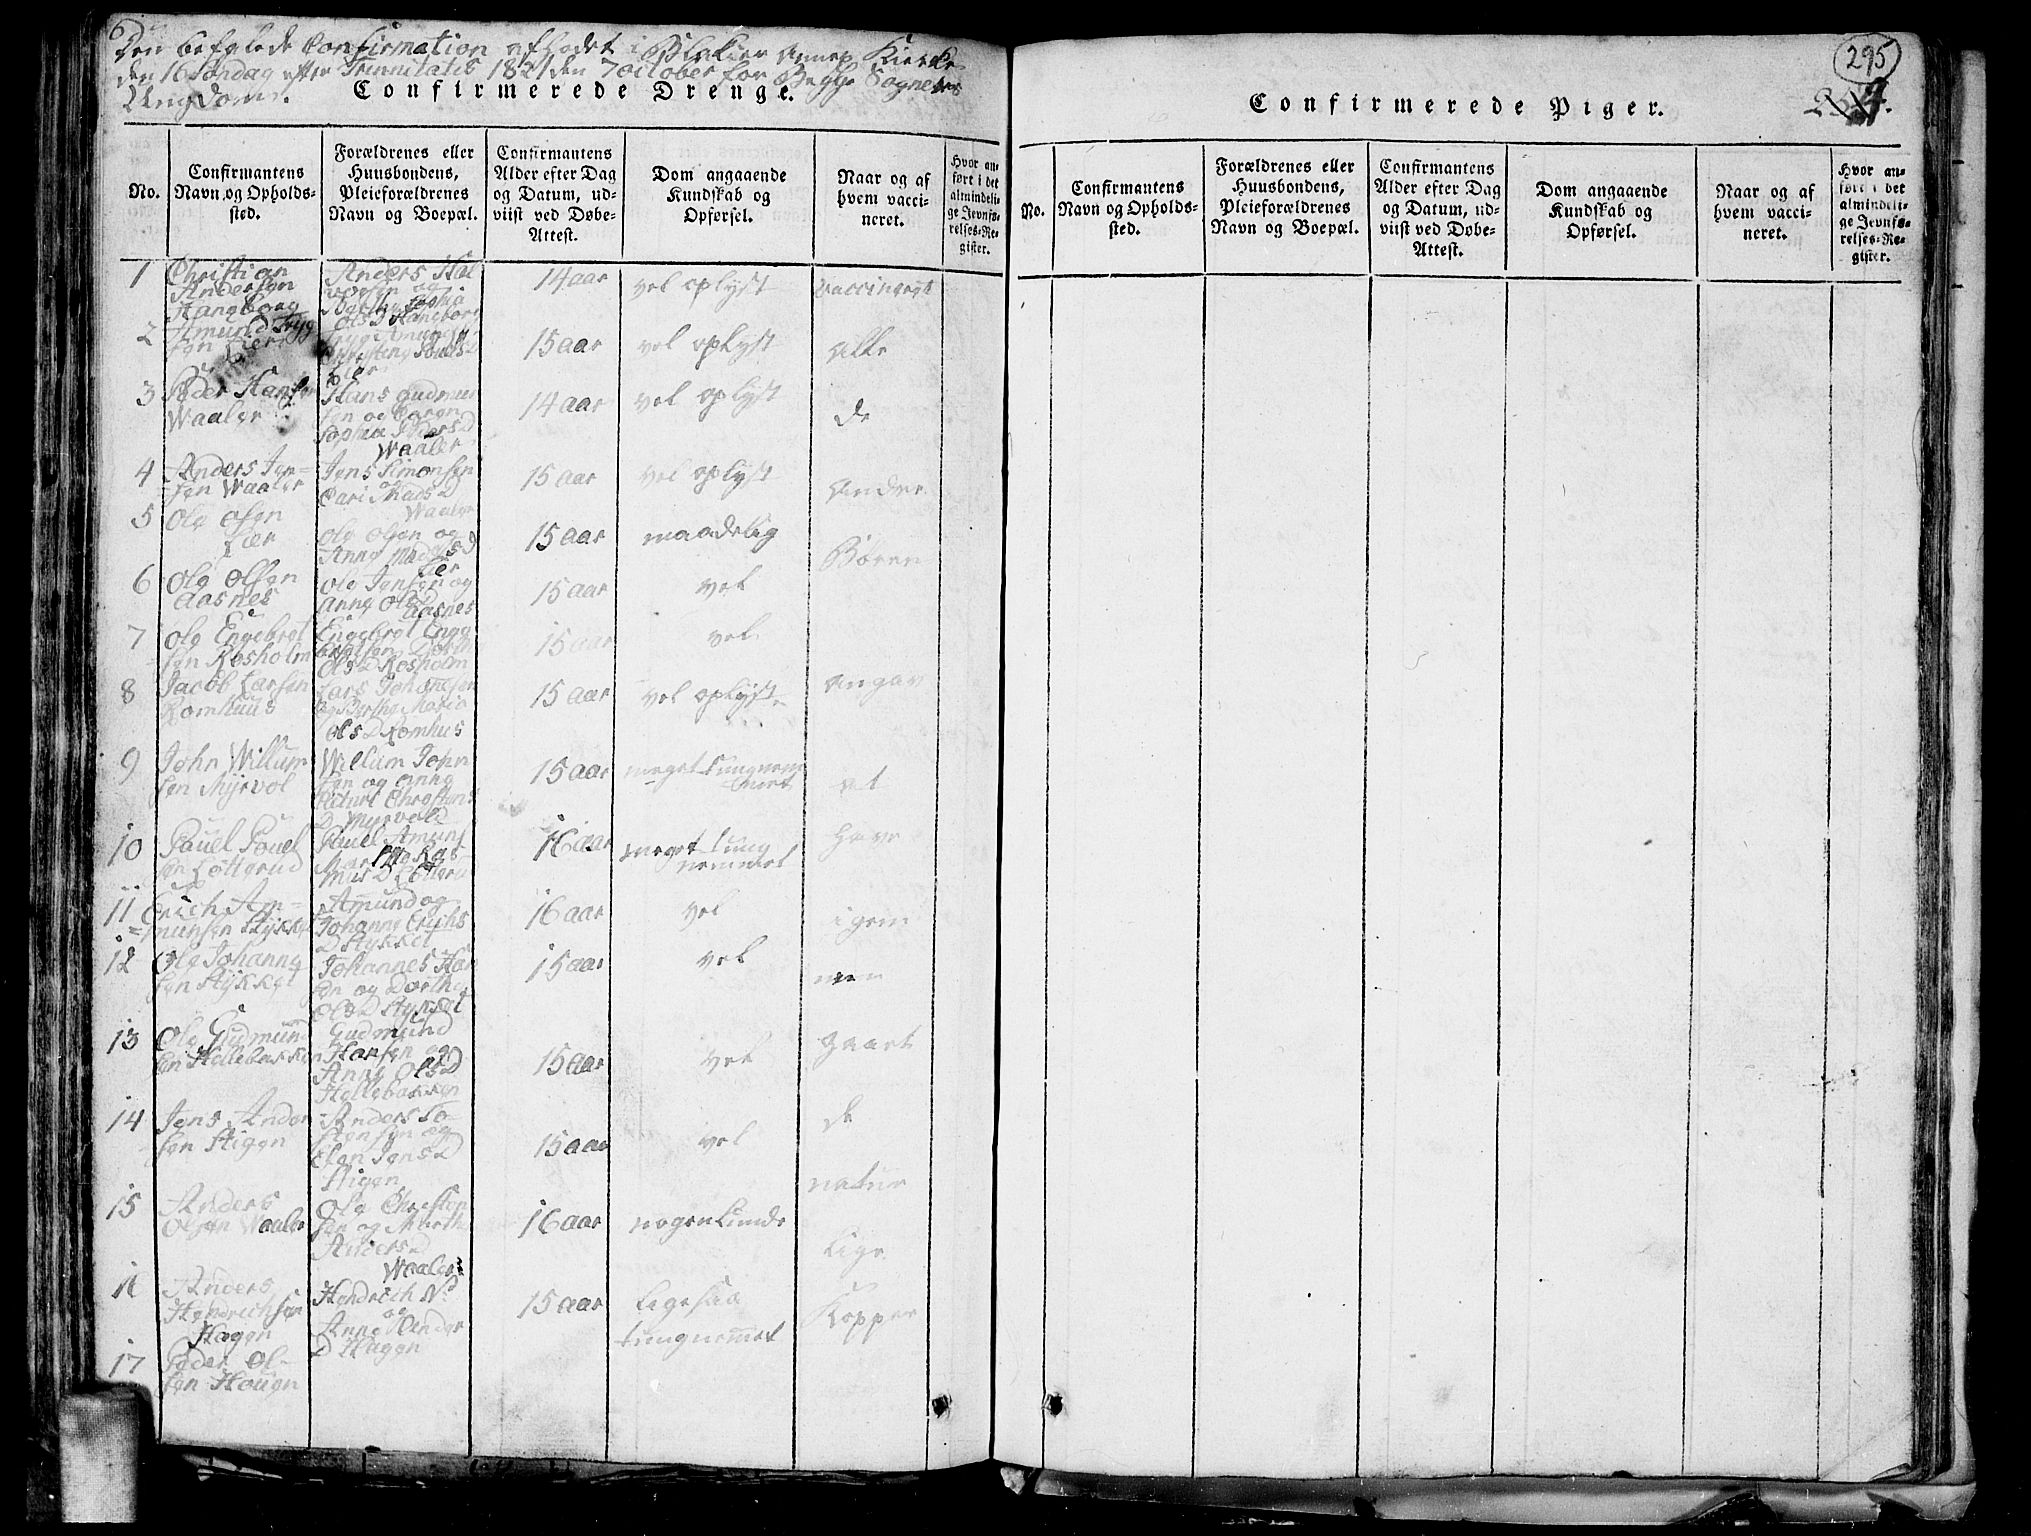 Den befalede Confirmation afholdet i Blakier Annex Kierke
den 16 Søndag efter Trinnitatis 1821 den 7 october for Begge Sognenes
Ungdom.
Confirmerede Drenge.
No.
Confirmantens
Navn og Opholds-
sted.
Forældrenes eller
Huusbondens,
Pleieforældrenes
Navn og Boepæl.
Confirmantens
Alder efter Dag
og Datum, ud-
viist ved Døbe-
Attest.
Dom angaaende
Kundskab og
Opførsel.
Naar og af
hvem vacci-
neret.
Hvor an-
ført i det
almindeli-
ge Jevnfø-
relses-Re-
gister.
1
Christian
Andersen
Hangborg
Anders Hal
vorsen og
Sophia
Olsd Hangborg
14 aar
vel oplyst
Vaccineret
2
Amund Tryg
sen Lier
Lier
15 aar
vel oplyst
Alle
3
Peder Hansen
Waaler
Hans Gudmun
sen og Karen
Sophia Pedersd
Waaler
14 aar
vel oplyst
de
4
Anders Jen=
=sen Waaler
Jens Simonsen
og
Kari Madsd
Waaler
15 aar
vel oplyst
Andre
5
Ole Olsen
Lier
Ole Olsen og
Anne Madsd
Lier
15 aar
maadelig
Børen
6
Ole Olsen
Aasnes
Ole Jensen og
Anne Olsd
Aasnes
15 aar
vel
7
Ole Engebret
sen Rosholm
Engebret Enge
bretsen Dorth
Olsd Rosholm
15 aar
vel
8
Jacob Larsen
Romhuus
Lars Johannesen
og Berthe Maria
Olsd Romhus
15 aar
vel oplyst
angav
9
John Willum
sen Myrvol
Willum John
sen og Anne
Christens
D Myrvold
15 aar
meget tungnem
met
at
10
Pouel Pouel
sen Løttgrud
Pouel Amund
Ras
mus D
16 aar
meget tung
nemmet
have
11
Erich Am=
=munsen Stykket
Amund og
Johanne Erichs
D Stykket
16 aar
vel
igen
12
Ole Johanne
sen Stykket
Johannes Han
sen og Dorthe
Olsd Stykket
15 aar
vel
nem
13
Ole Gudmun
sen Hellebekken
Gudmund
Hansen og
Anne Olsd
Hellebekken
15 aar
vel
gaaet
14
Jens Ander
sen Stigen
Anders To=
stensen og
Elen Jensd
Stigen
15 aar
vel
de
15
Anders
Olsen Waaler
Ole Christen
sen og Marth
Andersd
Waaler
16 aar
nogenlunde
natur
lige
16
Anders
Hendrichsen
Hagen
Hendrich
og
Anne Peder
D Hagen
15 aar
ligesaa
tungnemmet
Kopper
17
Peder Ol=
sen Hougen
295
Confirmerede Piger.
No.
Confirmantens
Navn og Opholds-
sted.
Forældrenes eller
Huusbondens,
Pleieforældrenes
Navn og Boepæl.
Confirmantens
Alder efter Dag
og Datum, ud-
viist ved Døbe-
Attest.
Dom angaaende
Kundskab og
Opførsel.
Naar og af
hvem vacci-
neret.
Hvor an-
ført i det
almindeli-
ge Jevnfø-
relses-Re-
gister.